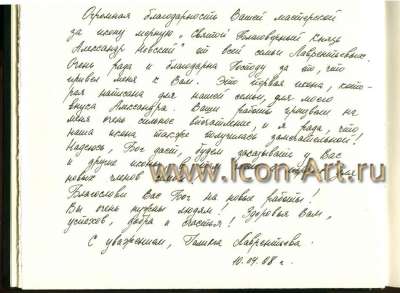 Огромная благодарность Вашей мастерской
за икону мерную „Святой Благоверный Князь
Александр Невский" от всей семьи Лаврентьевых.
Очень рада и благодарна Господу за то, что
привел меня к Вам. Это первая икона, кото-
рая написана для нашей семьи, для моего
внука Александра. Ваши работы произвели на
меня очень сильное впечатление, и я рада, что
наша икона также получилась замечательной!
Надеюсь, Бог даст, будем заказывать у Вас
и другие иконы
новых членов
www.Icon-Art.ru
Благослови Вас Бог на новые работы!
Вы очень нужны людям! Здоровья Вам,
успехов, добра и счастья!
С уважением, Галина Лаврентьева.
10.04.08 г.